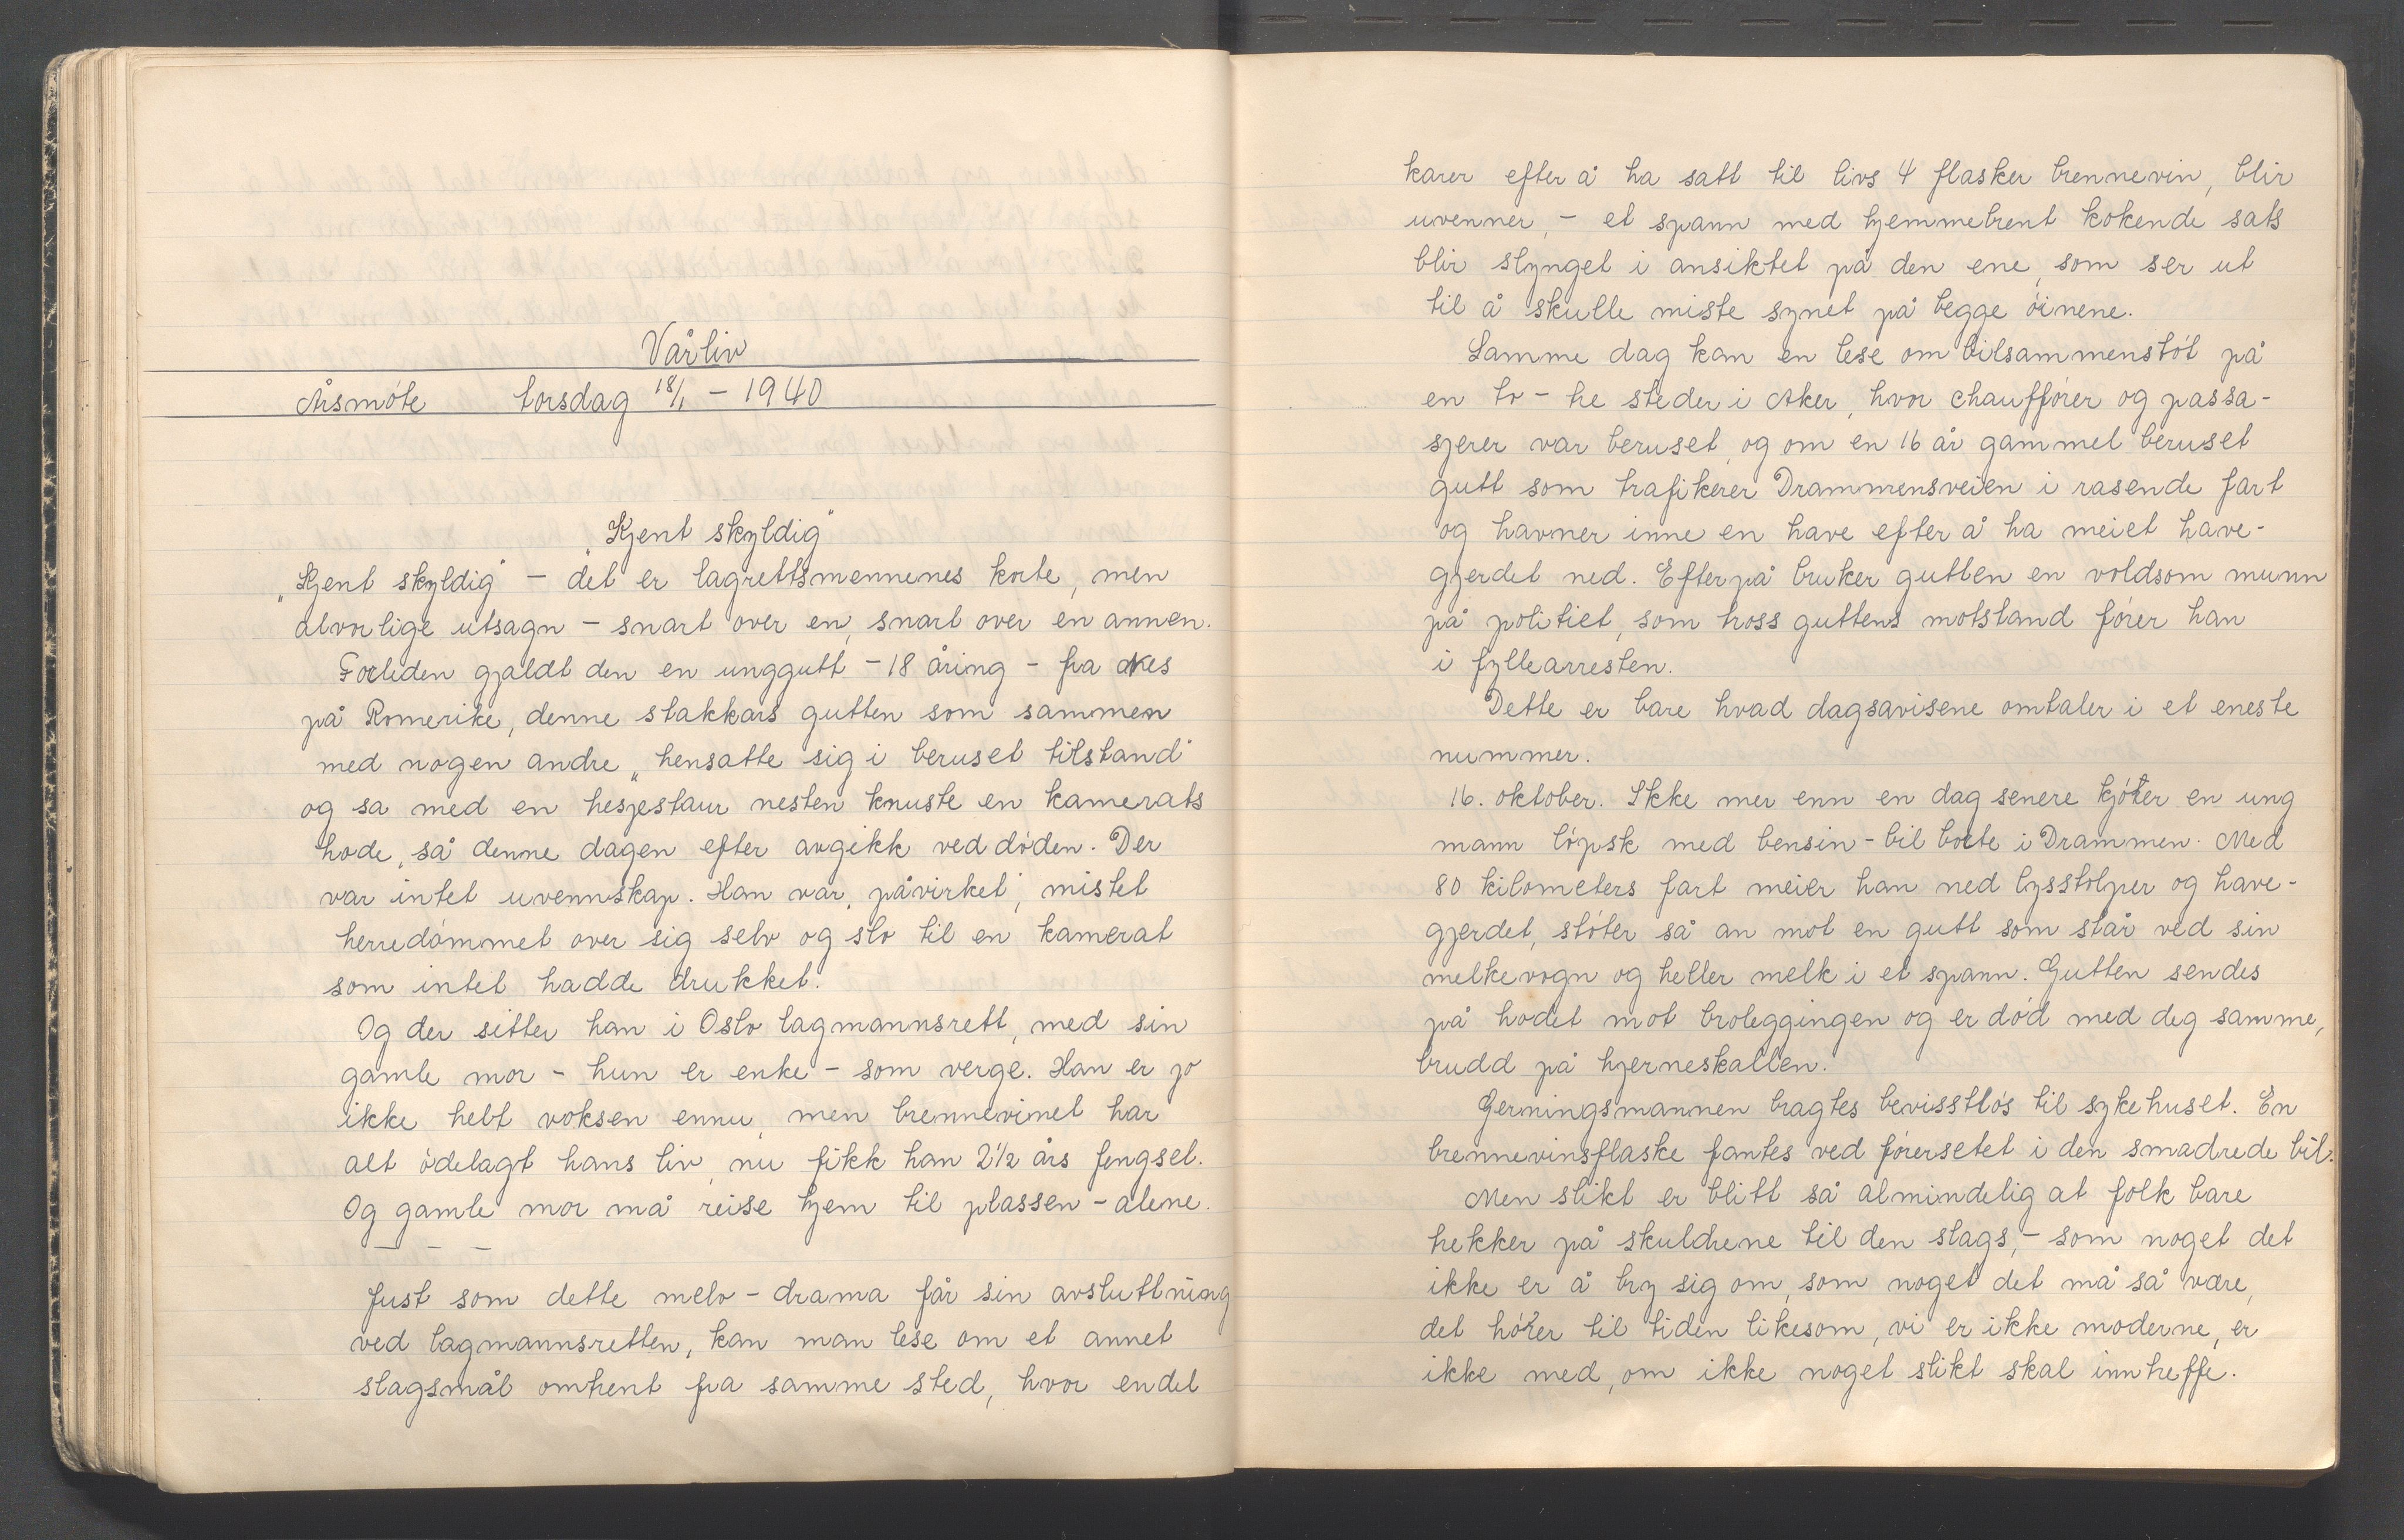 Vårliv
Årsmöte torsdag 18/1 - 1940
„Kjent skyldig"
„Kjent skyldig" - det er lagrettsmennenes korte, men
alvorlige utsagn - snart over en, snart over en annen.
Forleden gjaldt den en unggutt - 18 åring - fra Nes
på Romerike, denne stakkars gutten som sammen
med nogen andre „hensatte sig i beruset tilstand"
og sa med en hesjestaur nesten knuste en kamerats
hode, så denne dagen efter avgikk ved döden. Der
var intet uvennskap. Han var „påvirket", mistet
herredömmet over sig selv og slo til en kamerat
som intet hadde drukket.
Og der sitter han i Oslo lagmannsrett, med sin
gamle mor - hun er enke - som verge. Han er jo
ikke helt voksen ennu, men brennevinet har
alt ödelagt hans liv, nu fikk han 2 1/2 års fengsel.
Og gamle mor må reise hjem til plassen - alene.
- - -
Just som dette melo-drama får sin avsluttning
ved lagmannsretten, kan man lese om et annet
slagsmål omtrent fra samme sted, hvor endel
karer efter å ha satt til livs 4 flasker brennevin, blir
uvenner, - et spann med hjemmebrent kokende sats
blir slynget i ansiktet på den ene, som ser ut
til å skulle miste synet på begge öinene.
Samme dag kan en lese om bilsammenstöt på
en to - tre steder i Aker, hvor chauffører og passa-
sjerer var beruset, og om en 16 år gammel beruset
gutt som trafikerer Drammensveien i rasende fart
og havner inne en have efter å ha meiet have-
gjerdet ned. Efterpå bruker gutten en voldsom munn
på politiet, som tross guttens motstand förer han
i fyllearresten.
Dette er bare hvad dagsavisene omtaler i et eneste
nummer.
16. oktober. Ikke mer enn en dag senere kjörer en ung
mann löpsk med bensin-bil borte i Drammen. Med
80 kilometers fart meier han ned lysstolper og have-
gjerdet, stöter så an mot en gutt som står ved sin
melkevogn og heller melk i et spann. Gutten sendes
på hodet mot broleggingen og er död med deg samme,
brudd på hjerneskallen.
Gerningsmannen bragtes bevisstlös til sykehuset. En
brennevinsflaske fantes ved förersetet i den smadrede bil.
Men slikt er blitt så almindelig at folk bare
trekker på skuldrene til den slags, - som noget det
ikke er å bry sig om, som noget det må så være,
det hörer til tiden likesom, vi er ikke moderne, er
ikke med, om ikke noget slikt skal inntreffe.